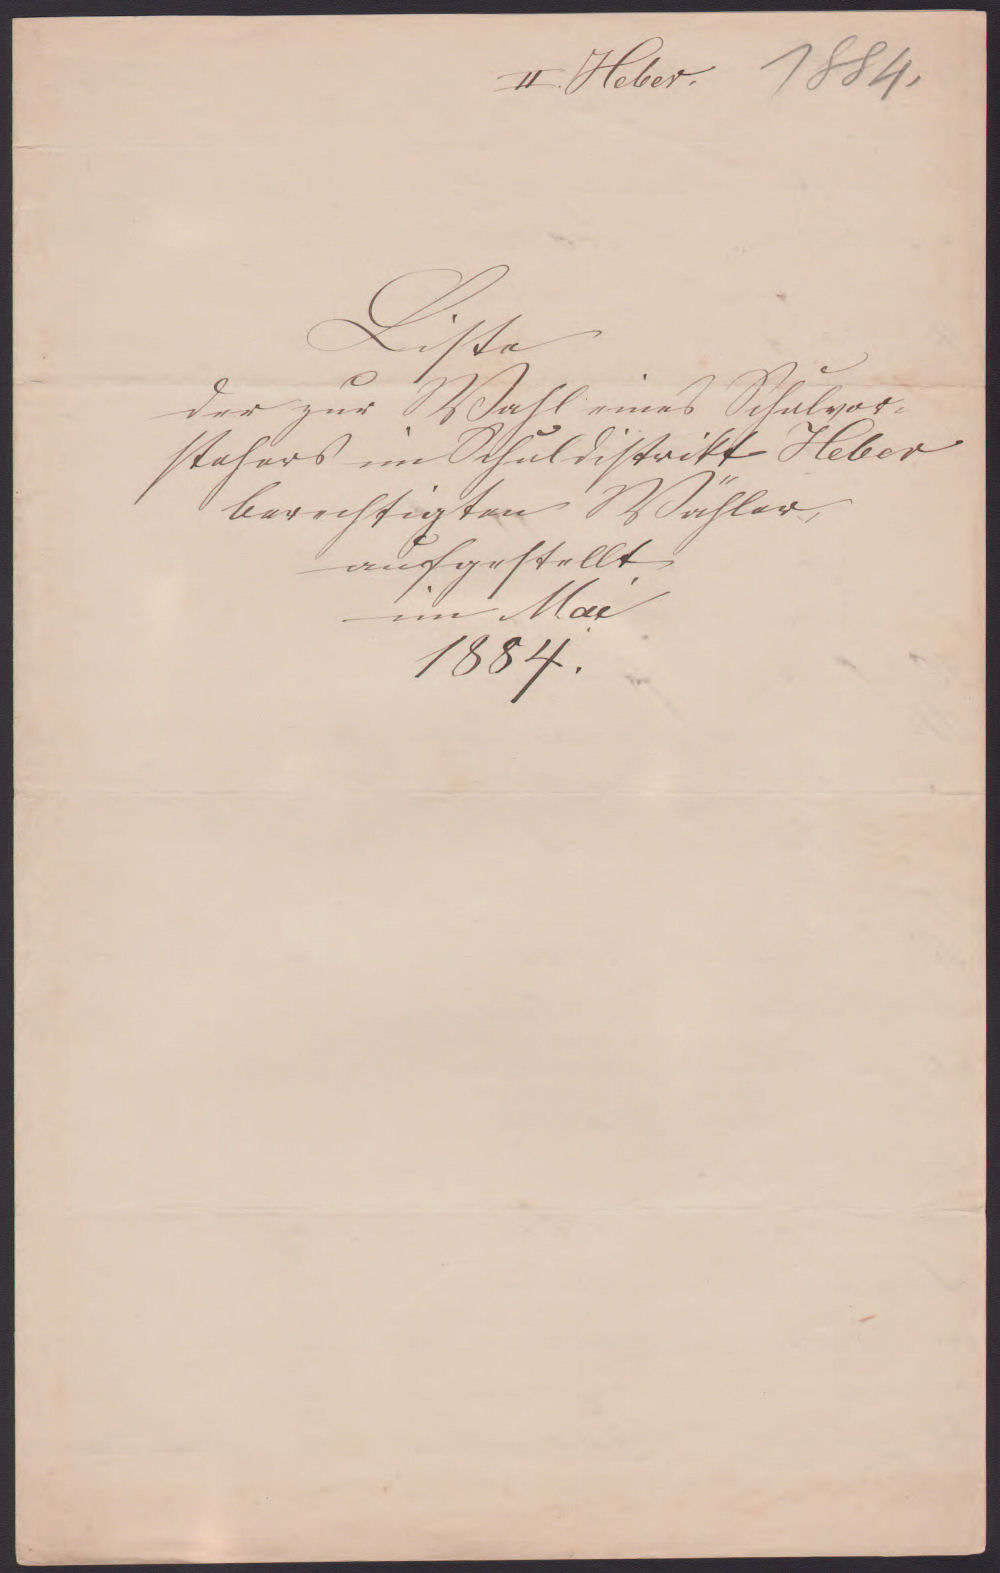 II. Heber. 1884.
Liste
der zur Wahl eines Schulvor-
stehers im Schuldistrikt Heber
berechtigten Wähler,
aufgestellt
im Mai
1884.